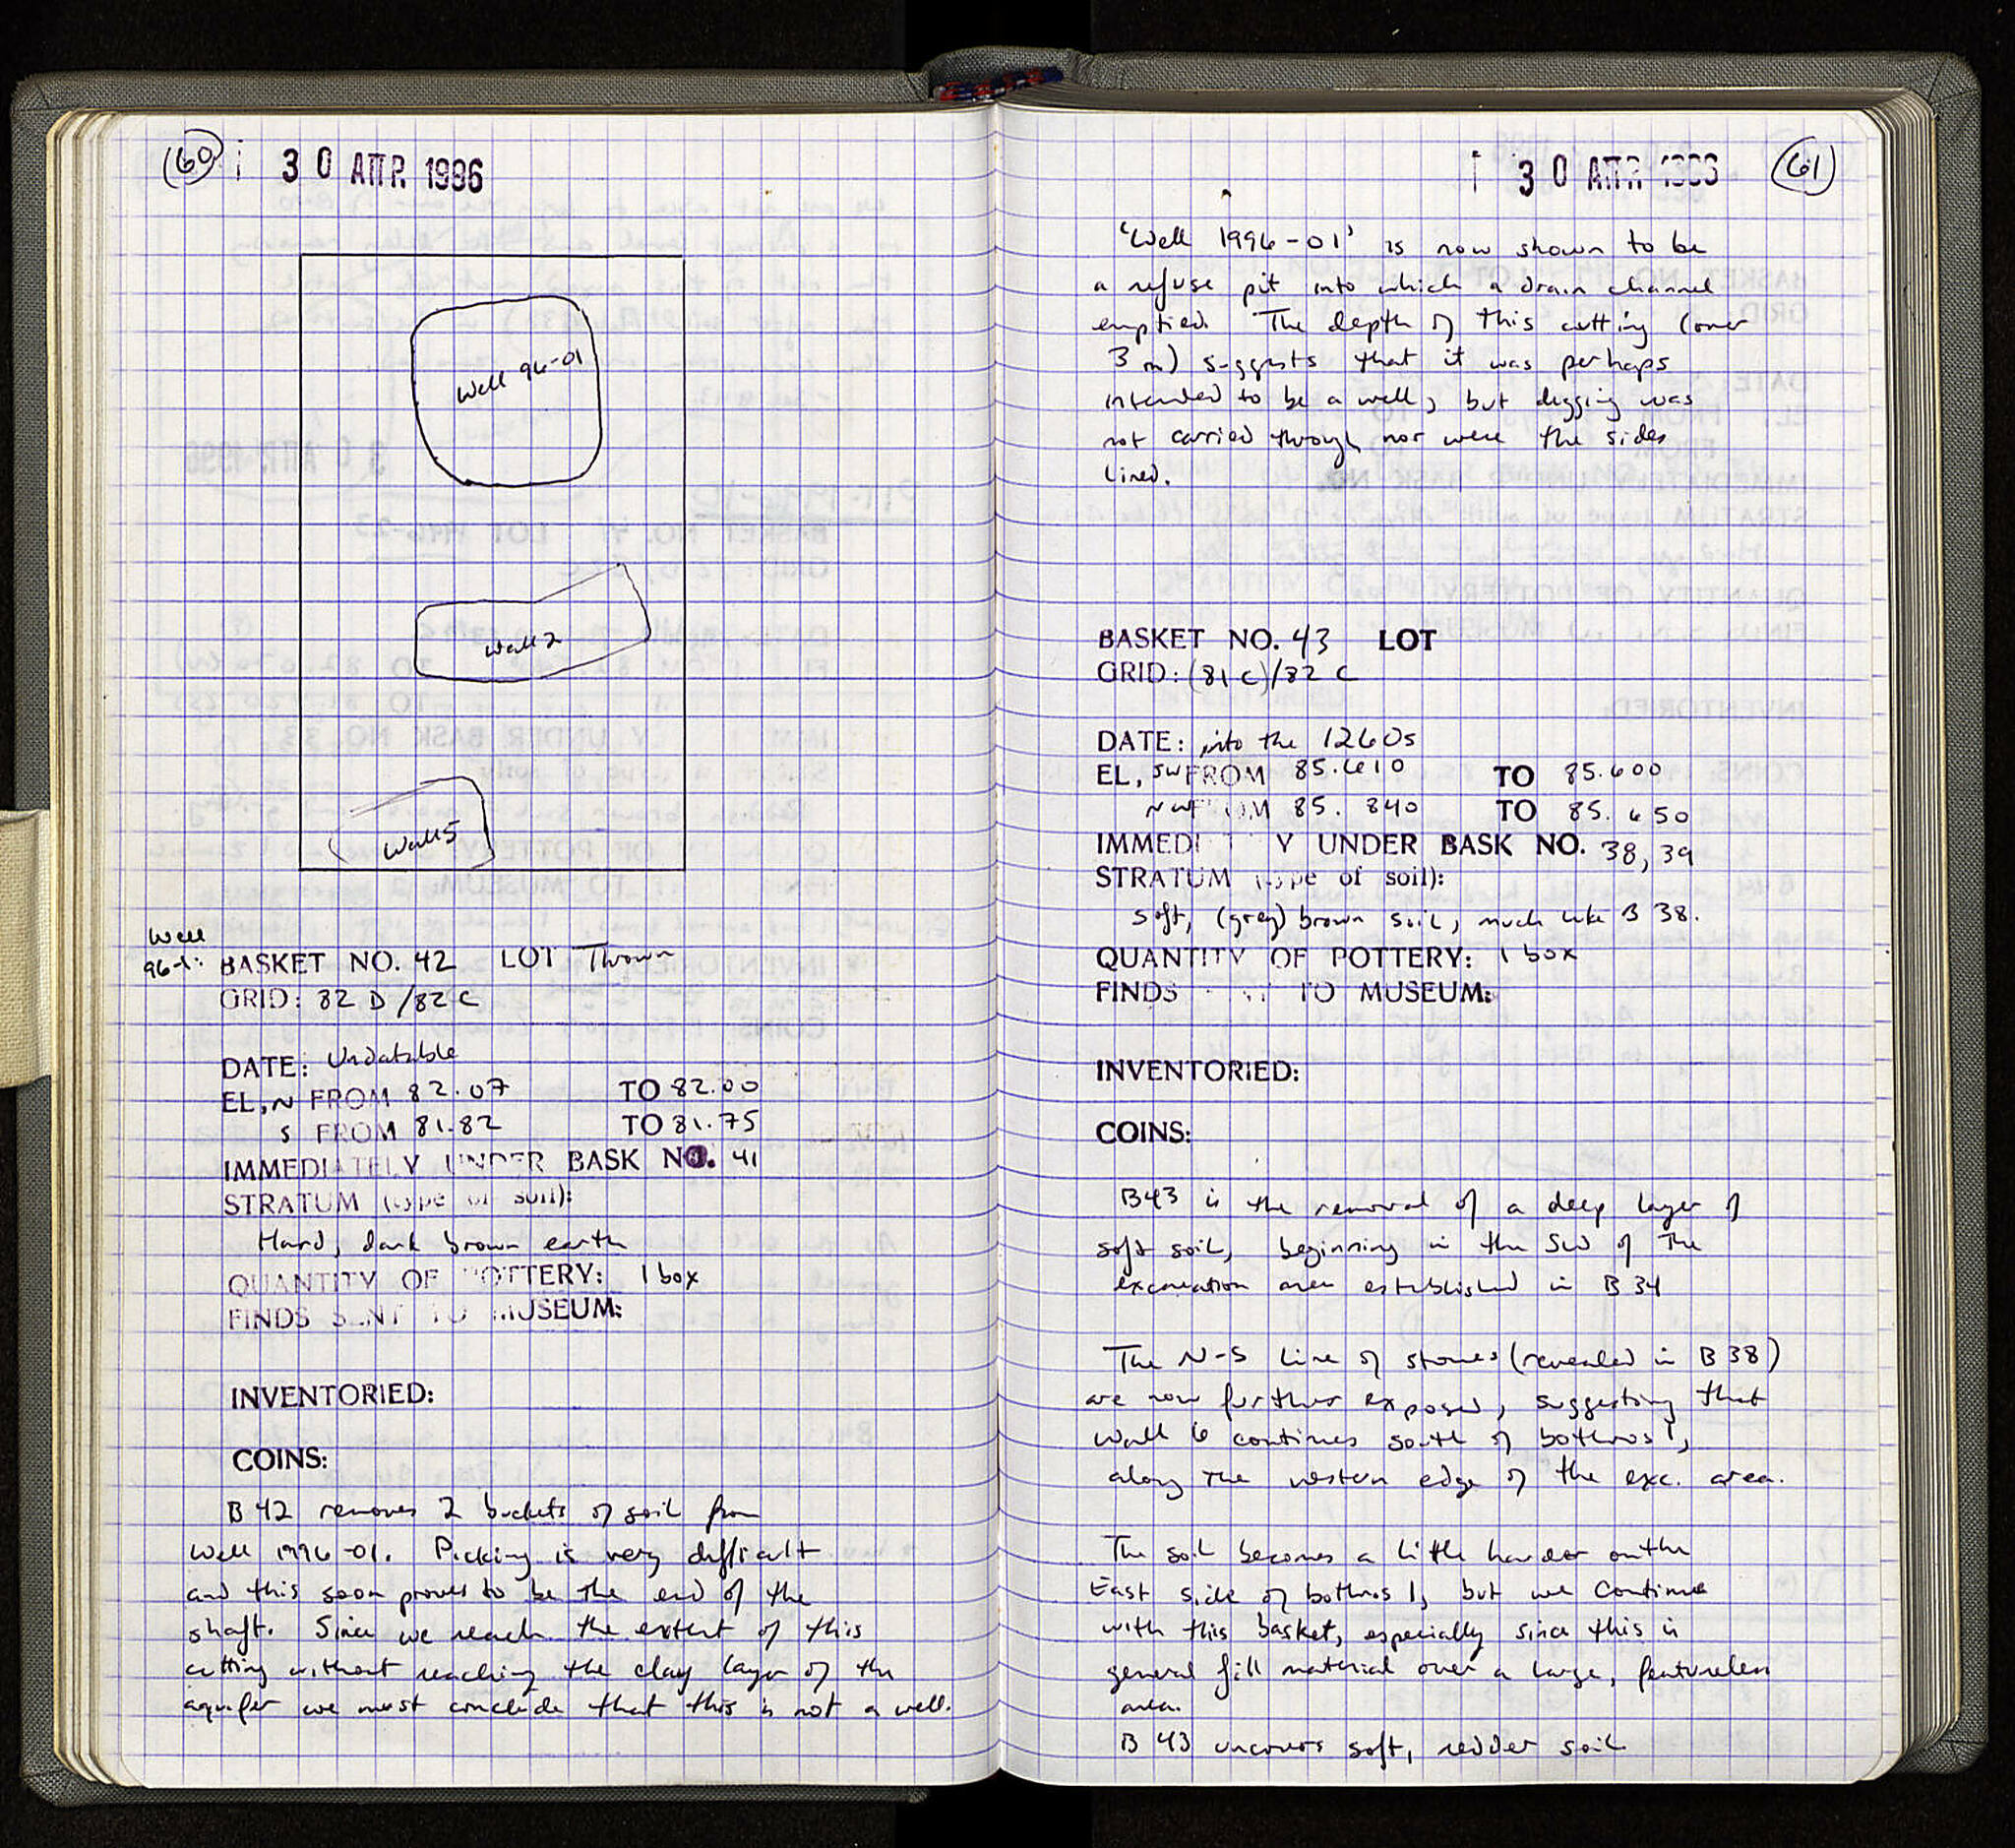 (60)
30 ΑΠΡ. 1996
Well 96-01
Wall 2
Wall 5
Well
96-1:
BASKET NO. 42 LOT Thrown
GRID: 82 D/82C
DATE: Undatable
EL, N FROM 82.07 TO 82.00
S FROM 81.82 TO 81.75
IMMEDIATELY UNDER BASK NO. 41
STRATUM (type of soil):
Hard, dark brown earth
QUANTITY OF POTTERY: 1 box
FINDS SENT TO MUSEUM:
INVENTORIED:
COINS:
B 42 removes 2 buckets of soil from
Well 1996-01. Picking is very difficult
and this soon proves to be the end of the
shaft. Since we reach the extent of this
cutting without reaching the clay layer of the
aquifer we must conclude that this is not a well.
30 ΑΠΡ. 1996
(61)
'Well 1996-01' is now shown to be
a refuse pit into which a drain channel
emptied. The depth of this cutting (over
3 m) suggests that it was perhaps
intended to be a well, but digging was
not carried through nor were the sides
lined.
BASKET NO. 43 LOT
GRID: (81 C)/82 C
DATE: into the 1260s
EL, SW FROM 85.610 TO 85.600
NW FROM 85.840 TO 85.650
IMMEDIATELY UNDER BASK NO. 38, 39
STRATUM (type of soil):
Soft, (grey) brown soil, much like B 38.
QUANTITY OF POTTERY: 1 box
FINDS SENT TO MUSEUM:
INVENTORIED:
COINS:
B43 is the removal of a deep layer of
soft soil, beginning in the SW of the
excavation area established in B 34
The N-S line of stones (revealed in B 38)
are now further exposed, suggesting that
wall 6 continues south of bothros 1,
along the western edge of the exc. area.
The soil becomes a little harder on the
East side of bothros 1, but we continue
with this basket, especially since this is
general fill material over a large, featureless
area.
B 43 uncovers soft, redder soil